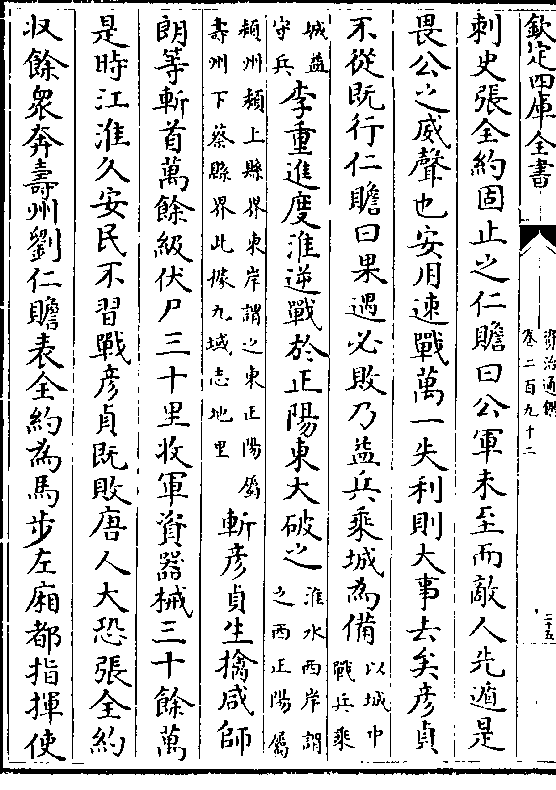 欽定四庫全書
資治通鑑
卷二百九十二
二十五
刺史張全約固止之仁贍曰公軍未至而敵人先遁是
畏公之威聲也安用速戰萬一失利則大事去矣彦貞
不從既行仁贍曰果遇必敗乃益兵乗城為備以城中戰兵乗
城益守兵李重進度淮逆戰於正陽東大破之淮水西岸謂之西正陽屬
潁州潁上縣界東岸謂之東正陽屬壽州下蔡縣界此據九域志地里斬彦貞生擒咸師
朗等斬首萬餘級伏尸三十里收軍資器械三十餘萬
是時江淮久安民不習戰彦貞既敗唐人大恐張全約
収餘衆奔壽州劉仁贍表全約為馬步左廂都指揮使